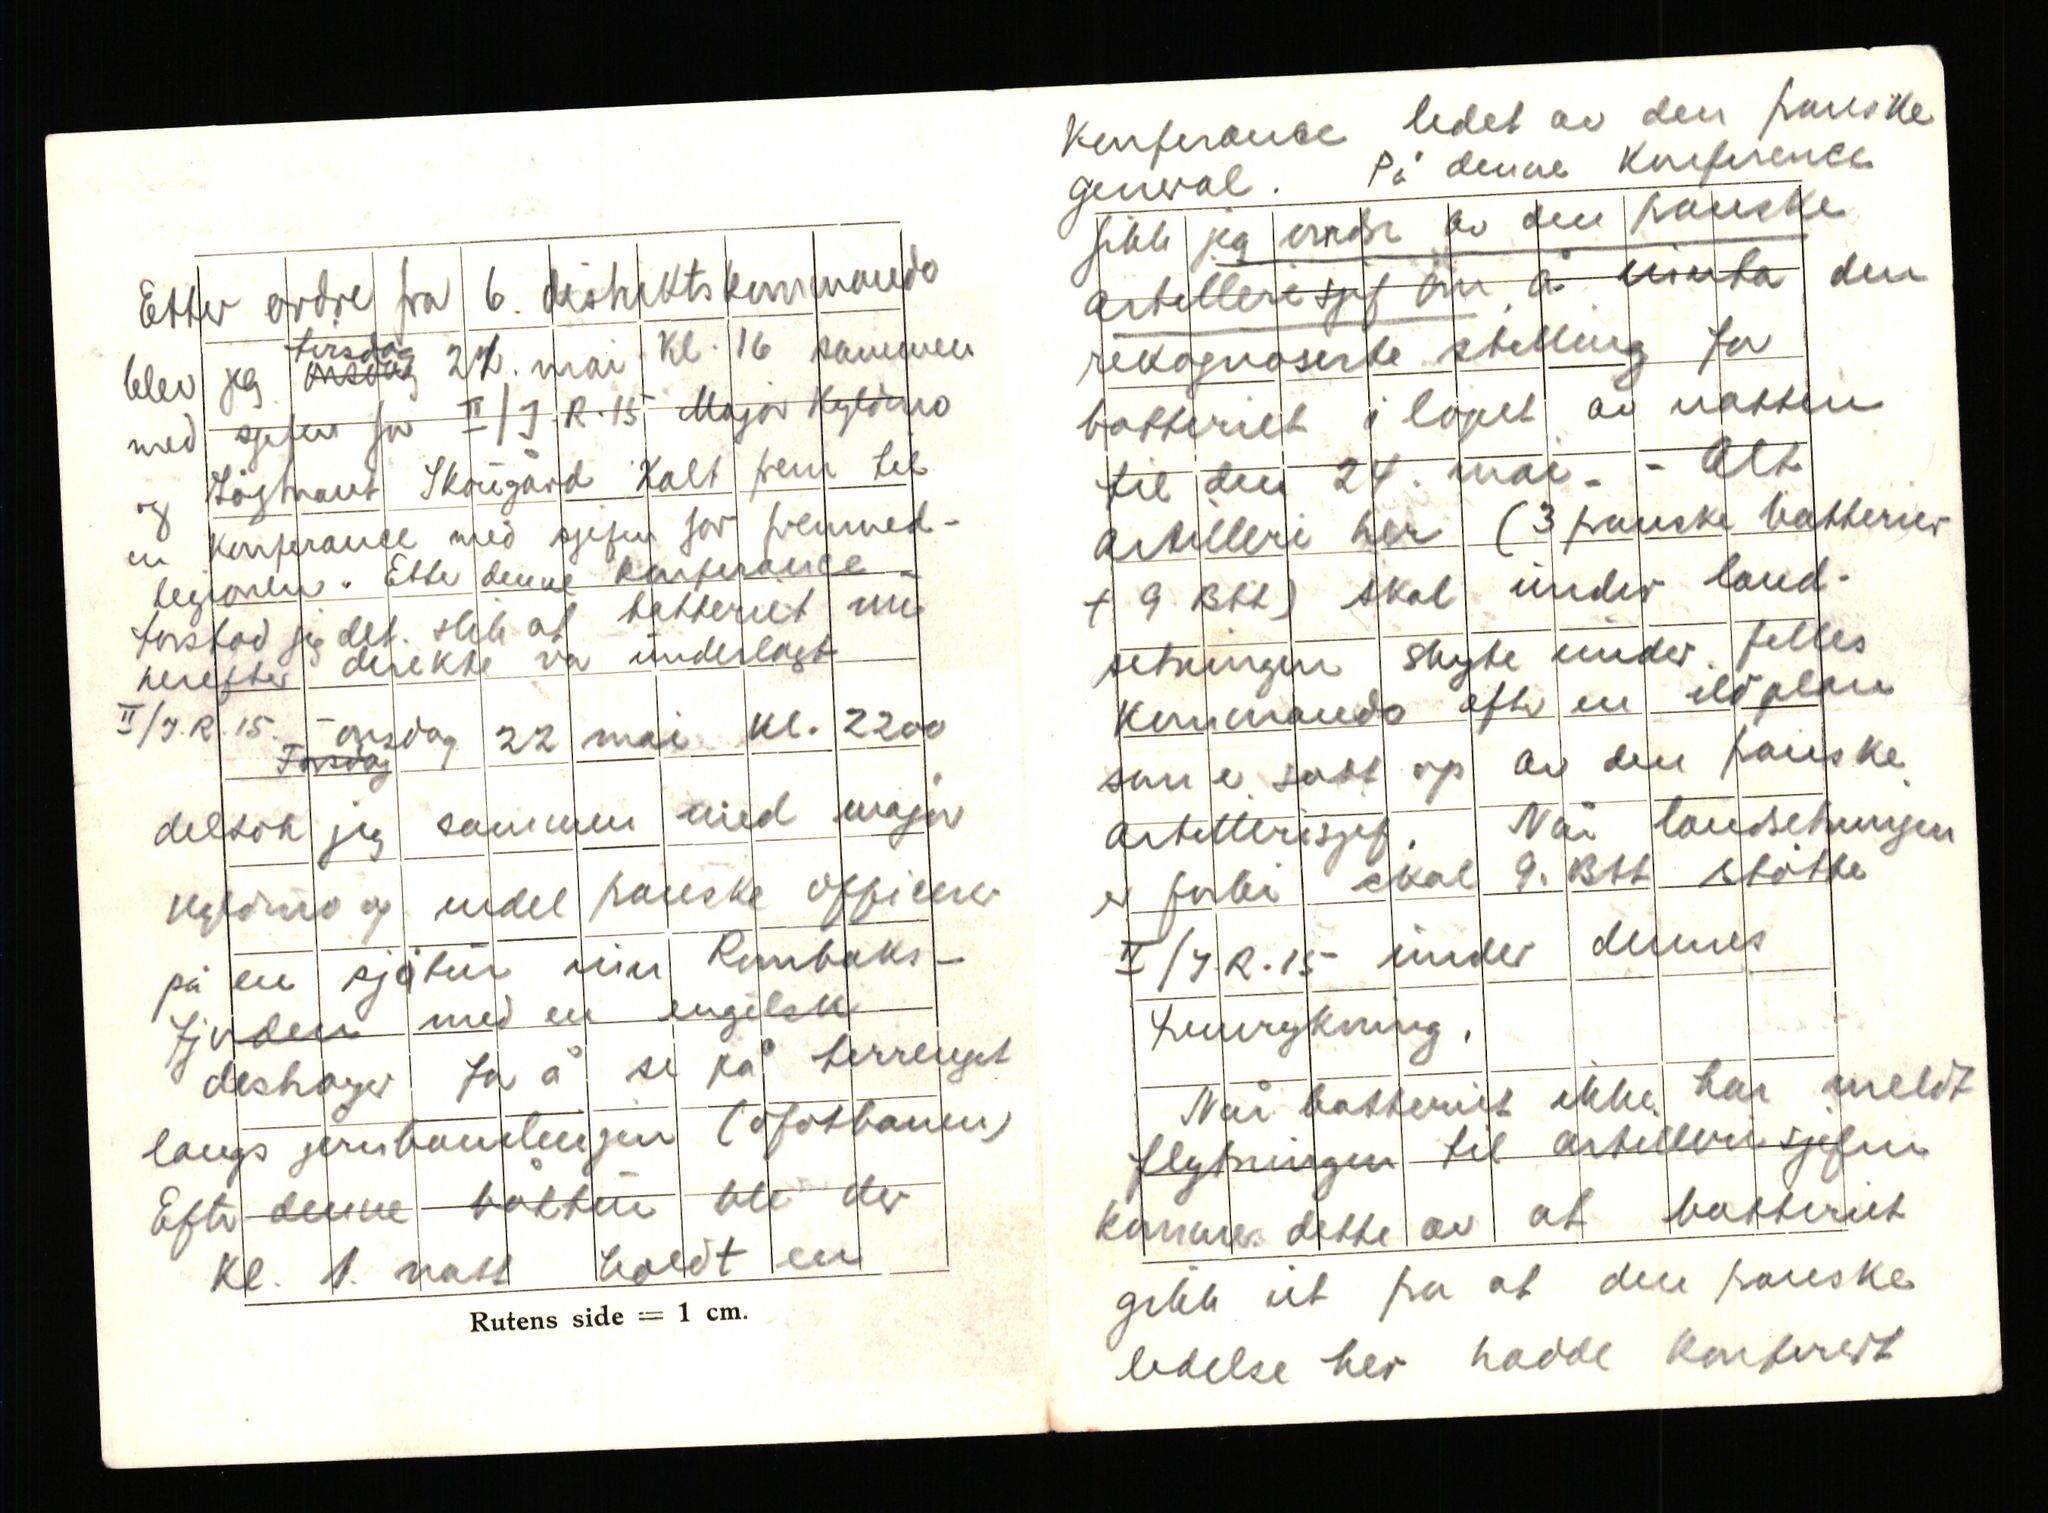 Etter ordre fra 6. distriktskommando
blev jeg tirsdag onsdag 21. mai kl. 16 sammen
med sjefen for II/J.R.15 Major Hyldmo
og Löytnant Skougård kalt frem til
en konferance med sjefen for fremmed-
legionen. Etter denne konferance
forstod jeg det slik at batteriet nu
herefter direkte va underlagt
II/J.R.15. - onsdag 22 mai kl. 2200
Torsdag
deltok jeg sammen med major
Hyldmo og endel franske officerer
på en sjøtur inn Rombaks-
fjorden med en engelsk
destroyer for å se på terrenget
langs jernbanelinjen (ofotbanen)
Efter denne båttur ble der
kl. 1. natt holdt en
Rutens side = 1 cm.
Konferance ledet av den franske
general. På denne Konference
fikk jeg ordre av den franske
artillerisjef om å innta den
rekognoserte stilling for
batteriet i löpet av natten
til den 24. mai. - Alt
artilleri her (3 franske batterier
+ 9. Btt) skal under land-
setningen skyte under felles
Kommando efter en ildplan
som e satt op av den franske
artillerisjef. Når landsetningen
er forbi skal 9. Btt støtte
II/J.R.15 under dennes
fremrykning.
Når batteriet ikke har meldt
flytningen til artillerisjefen
kommer dette av at batteriet
gikk ut fra at den franske
ledelse her hadde konferert